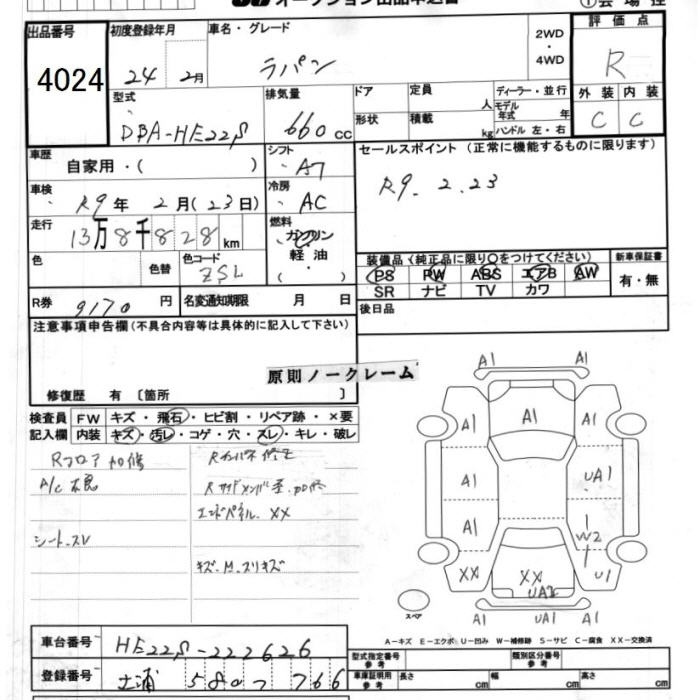 オークション出品申込書
①会場控
出品番号
4024
初度登録年月
24年2月
車名・グレード
ラパン
2WD・4WD
評価点
R
型式
DBA-HE22S
排気量
660cc
ドア
形状
定員 人
積載 kg
ディーラー・並行
モデル年式 年
ハンドル 左・右
外装 内装
C C
車歴
自家用・( )
シフト
A7
セールスポイント (正常に機能するものに限ります)
R9. 2. 23
車検
R9年 2月(23日)
冷房
AC
走行
13万8千828km
燃料
ガソリン
軽油
( )
色
色替
色コード
ZSL
装備品 (純正品に限り○をつけてください)
PS PW ABS エアB AW
SR ナビ TV カワ
新車保証書
有・無
R券
9170円
名変通知期限 月 日
後日品
注意事項申告欄(不具合内容等は具体的に記入して下さい)
原則ノークレーム
修復歴 有 〔箇所 〕
検査員記入欄
FW キズ・飛石・ヒビ割・リペア跡・×要
内装 キズ・汚レ・コゲ・穴・スレ・キレ・破レ
Rフロア加修
A/C不良
シートスレ
R サイドメンバ歪.加修
エンドパネル XX
キズ.M.スリキズ
A1 A1
A1 A1 A1
A1 UA1
A1 W2
XX XX U1
UA1
A1 A1
スペア
A-キズ E-エクボ U-凹み W-補修跡 S-サビ C-腐食 XX-交換済
車台番号
HE22S-222626
登録番号
土浦 580 ワ 766
型式指定番号
参考
類別区分番号
参考
車庫証明用
参考
長さ cm
幅 cm
高さ cm